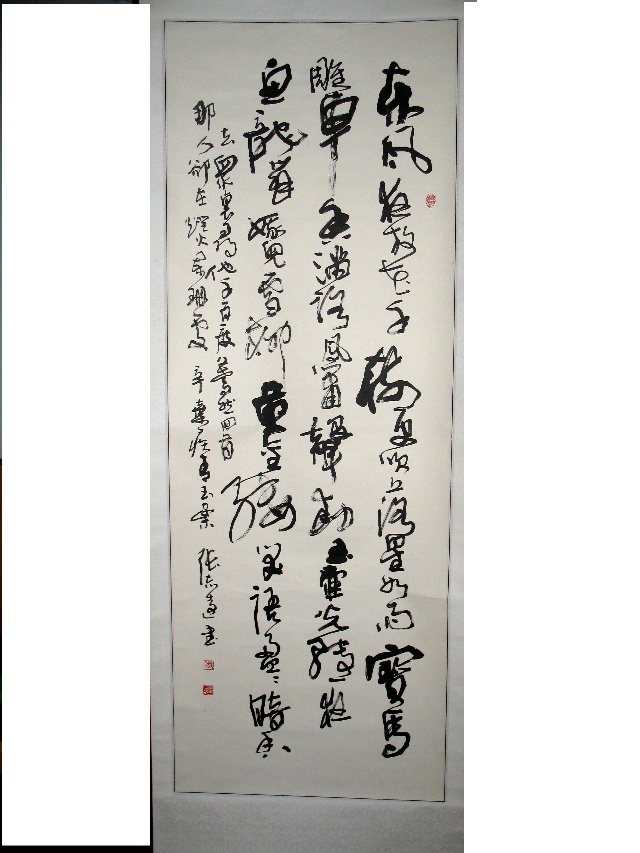 東風夜放花千樹更吹落星如雨寶馬
雕車香滿路鳳簫聲動玉壺光轉一夜
魚龍舞蛾兒雪柳黃金縷笑語盈盈暗香
去眾裏尋他千百度驀然回首
那人卻在燈火闌珊處 辛棄疾青玉案 張志遠書